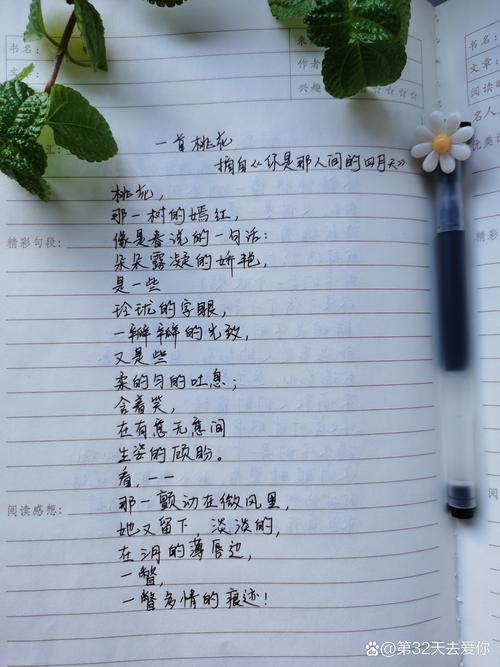 书名:
朱
作者
兴趣 ☆☆☆☆
书名:
文章:
阅读
名人
优美
汇:
一首桃花
摘自《你是那人间的四月天》
桃花,
那一树的嫣红,
像是春说的一句话:
朵朵露凝的娇艳,
是一些
玲珑的字眼,
一瓣瓣的光致,
又是些
柔的匀的吐息;
含着笑,
在有意无意间
生姿的顾盼。
看,——
那一颤动在微风里,
她又留下,淡淡的,
在三月的薄唇边,
一瞥,
一瞥多情的痕迹!
精彩句段:
阅读感想:
@第32天去爱你